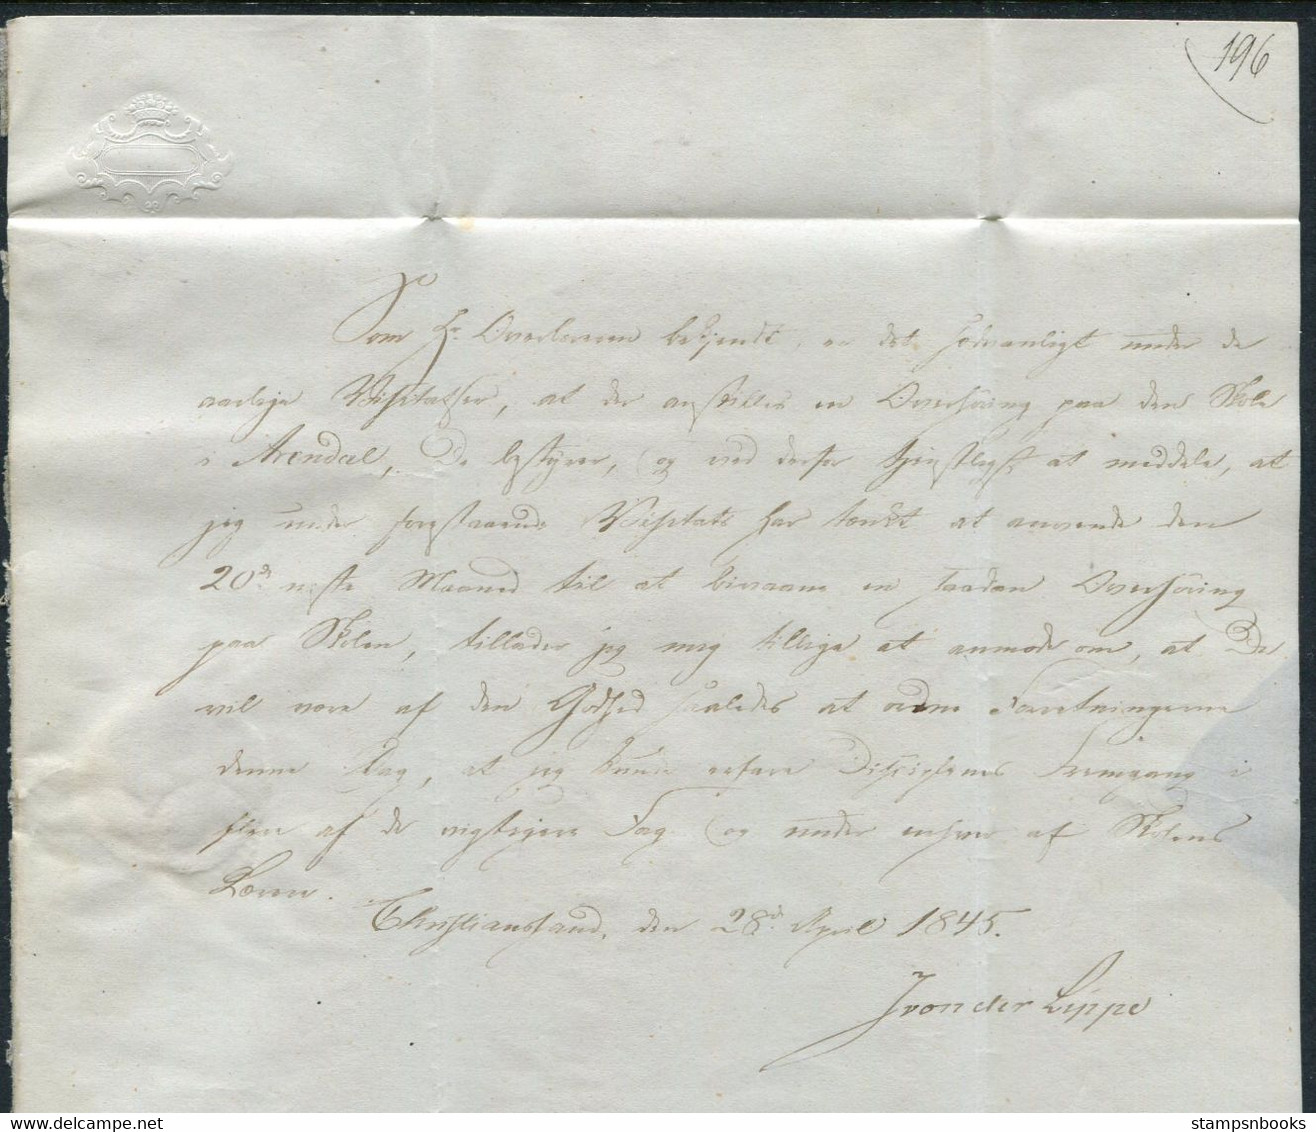 196
Som Hr. Overlæreren bekjendt, er det sædvanligt under de
aarlige Visitatser, at der anstilles en Overhøring paa den Skole
i Arendal, De bestyrer, og ved derfor tjenstligst at meddele, at
jeg under forestaaende Visitats har tænkt at anvende den
20de næste Maaned til at bivaane en saadan Overhøring
paa Skolen, tillader jeg mig tillige at anmode om, at De
vil være af den Godhed saaledes at ordne Forretningerne
denne Dag, at jeg kunde erfare Disciplenes Fremgang i
flere af de vigtigere Fag og under enhver af Skolens
Lærere.
Christianssand, den 28d April 1845.
J von der Lippe
stampsnbooks